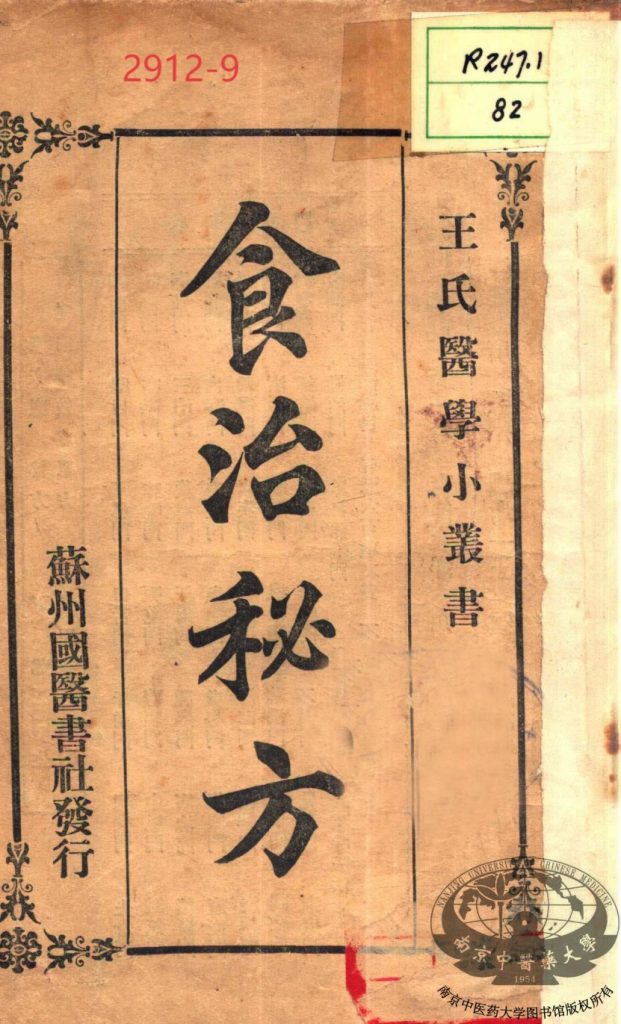 2912-9
R247.1
82
王氏醫學小叢書
食治秘方
蘇州國醫書社發行
NANJING UNIVERSITY OF CHINESE MEDICINE
南京中醫藥大學
1954
南京中医药大学图书馆版权所有